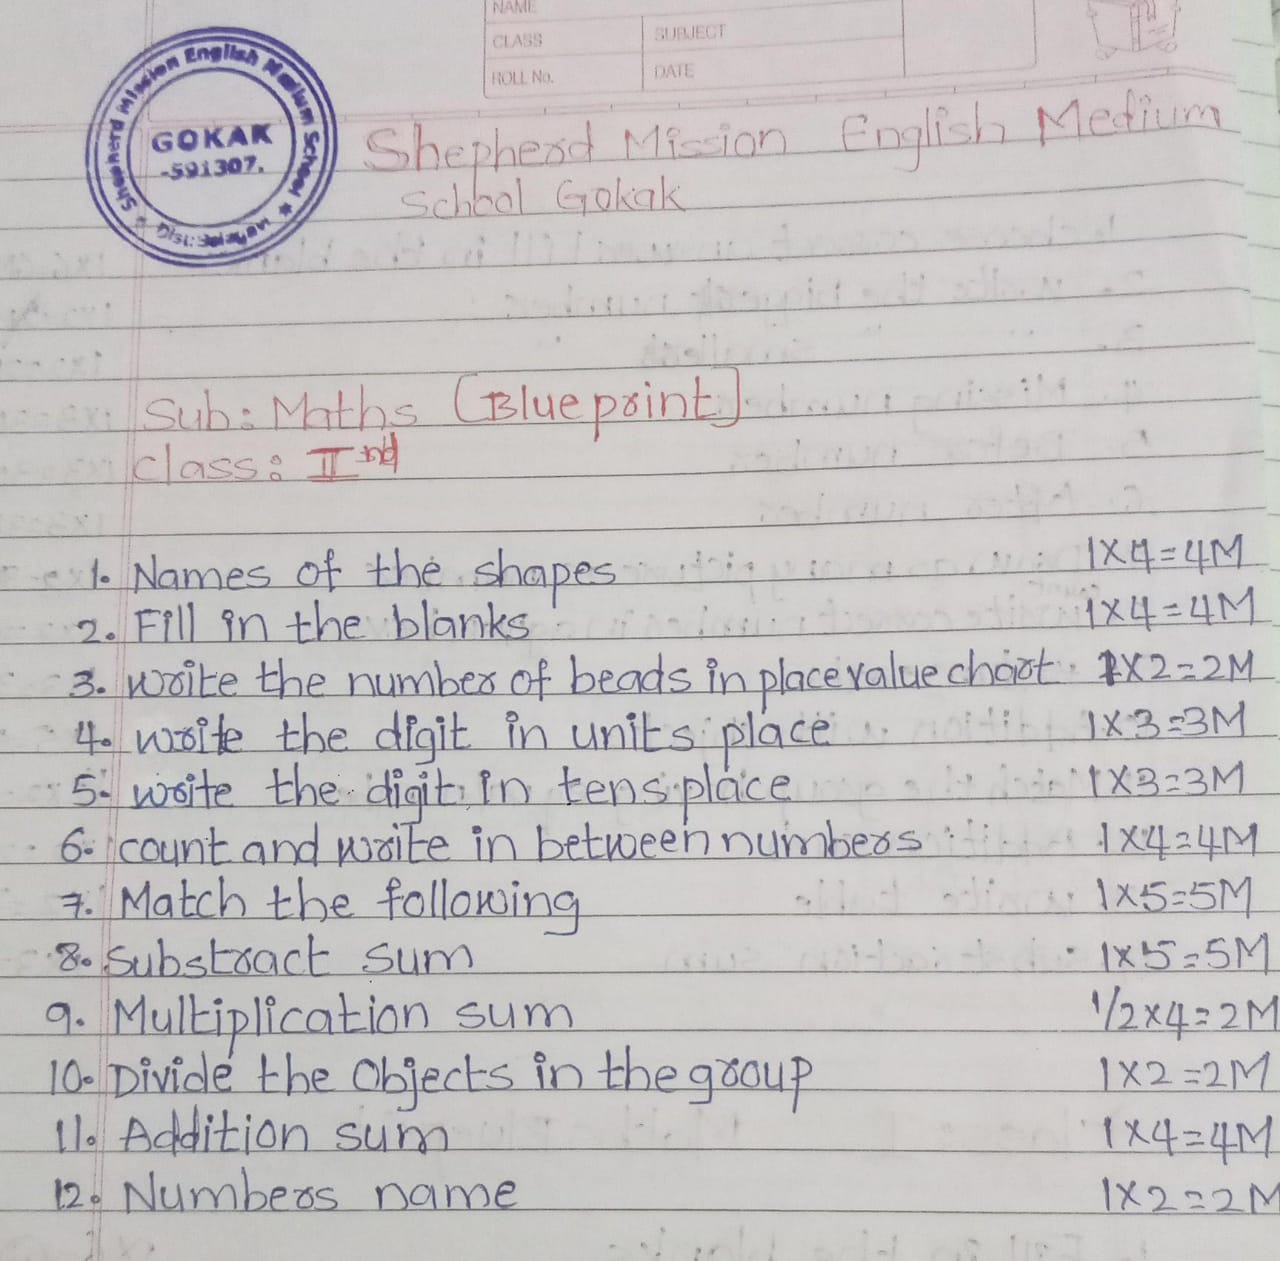 NAME
CLASS
SUBJECT
ROLL No.
DATE
Shepherd Mission English Medium School
GOKAK
-591307.
Shepherd Mission English Medium
School Gokak
Sub: Maths [Blueprint]
Class: IInd
1. Names of the shapes 1×4=4M
2. Fill in the blanks 1×4=4M
3. write the number of beads in place value chart 1×2=2M
4. write the digit in units place 1×3=3M
5. write the digit in tens place 1×3=3M
6. count and write in between numbers 1×4=4M
7. Match the following 1×5=5M
8. Substract sum 1×5=5M
9. Multiplication sum 1/2×4=2M
10. Divide the Objects in the group 1×2=2M
11. Addition sum 1×4=4M
12. Numbers name 1×2=2M